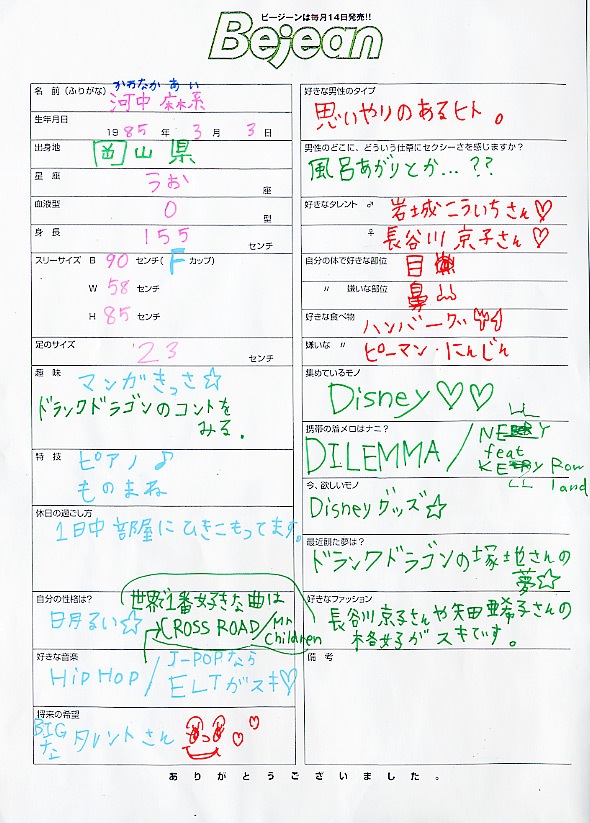 ビージーンは毎月14日発売!!
Bejean
名 前 (ふりがな) かわなか あい
河中 麻系
生年月日
1985 年 3 月 3 日
出身地
岡山県
星 座
うお 座
血液型
O 型
身 長
155 センチ
スリーサイズ B 90 センチ( F カップ)
W 58 センチ
H 85 センチ
足のサイズ
23 センチ
趣 味
マンガきっさ☆
ドランクドラゴンのコントを
みる.
特 技
ピアノ♪
ものまね
休日の過ごし方
1日中部屋にひきこもってます。
自分の性格は?
明るい☆
世界で1番好きな曲は
CROSS ROAD/Mr
Children
好きな音楽
HipHop / J-POPなら
ELTがスキ♡
将来の希望
BIGな タレントさん
好きな男性のタイプ
思いやりのあるヒト。
男性のどこに、どういう仕草にセクシーさを感じますか?
風呂あがりとか…??
好きなタレント ♂
岩城こういちさん♡
♀
長谷川京子さん♡
自分の体で好きな部位
目
〃 嫌いな部位
鼻
好きな食べ物
ハンバーグ
嫌いな 〃
ピーマン・にんじん
集めているモノ
Disney♡♡
携帯の着メロはナニ?
DILEMMA / NELLY
feat
KELLY Row
land
今、欲しいモノ
Disneyグッズ☆
最近観た夢は?
ドランクドラゴンの塚地さんの
夢☆
好きなファッション
長谷川京子さんや矢田亜希子さんの
格好がスキです。
備 考
ありがとうございました。